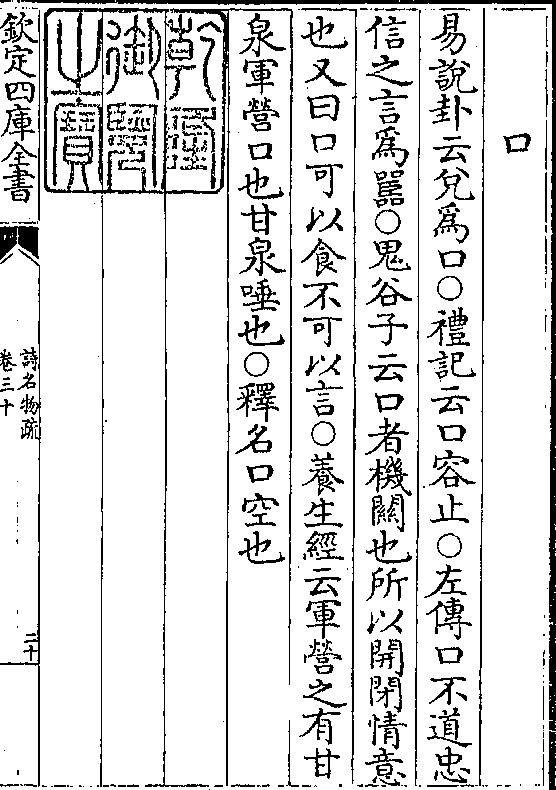 口
易說卦云兌爲口○禮記云口容止○左傳口不道忠
信之言爲嚚○鬼谷子云口者機關也所以開閉情意
也又曰口可以食不可以言○養生經云軍營之有甘
泉軍營口也甘泉唾也○釋名口空也
乾隆
御覽
之寶
欽定四庫全書
詩名物疏
卷三十
二十